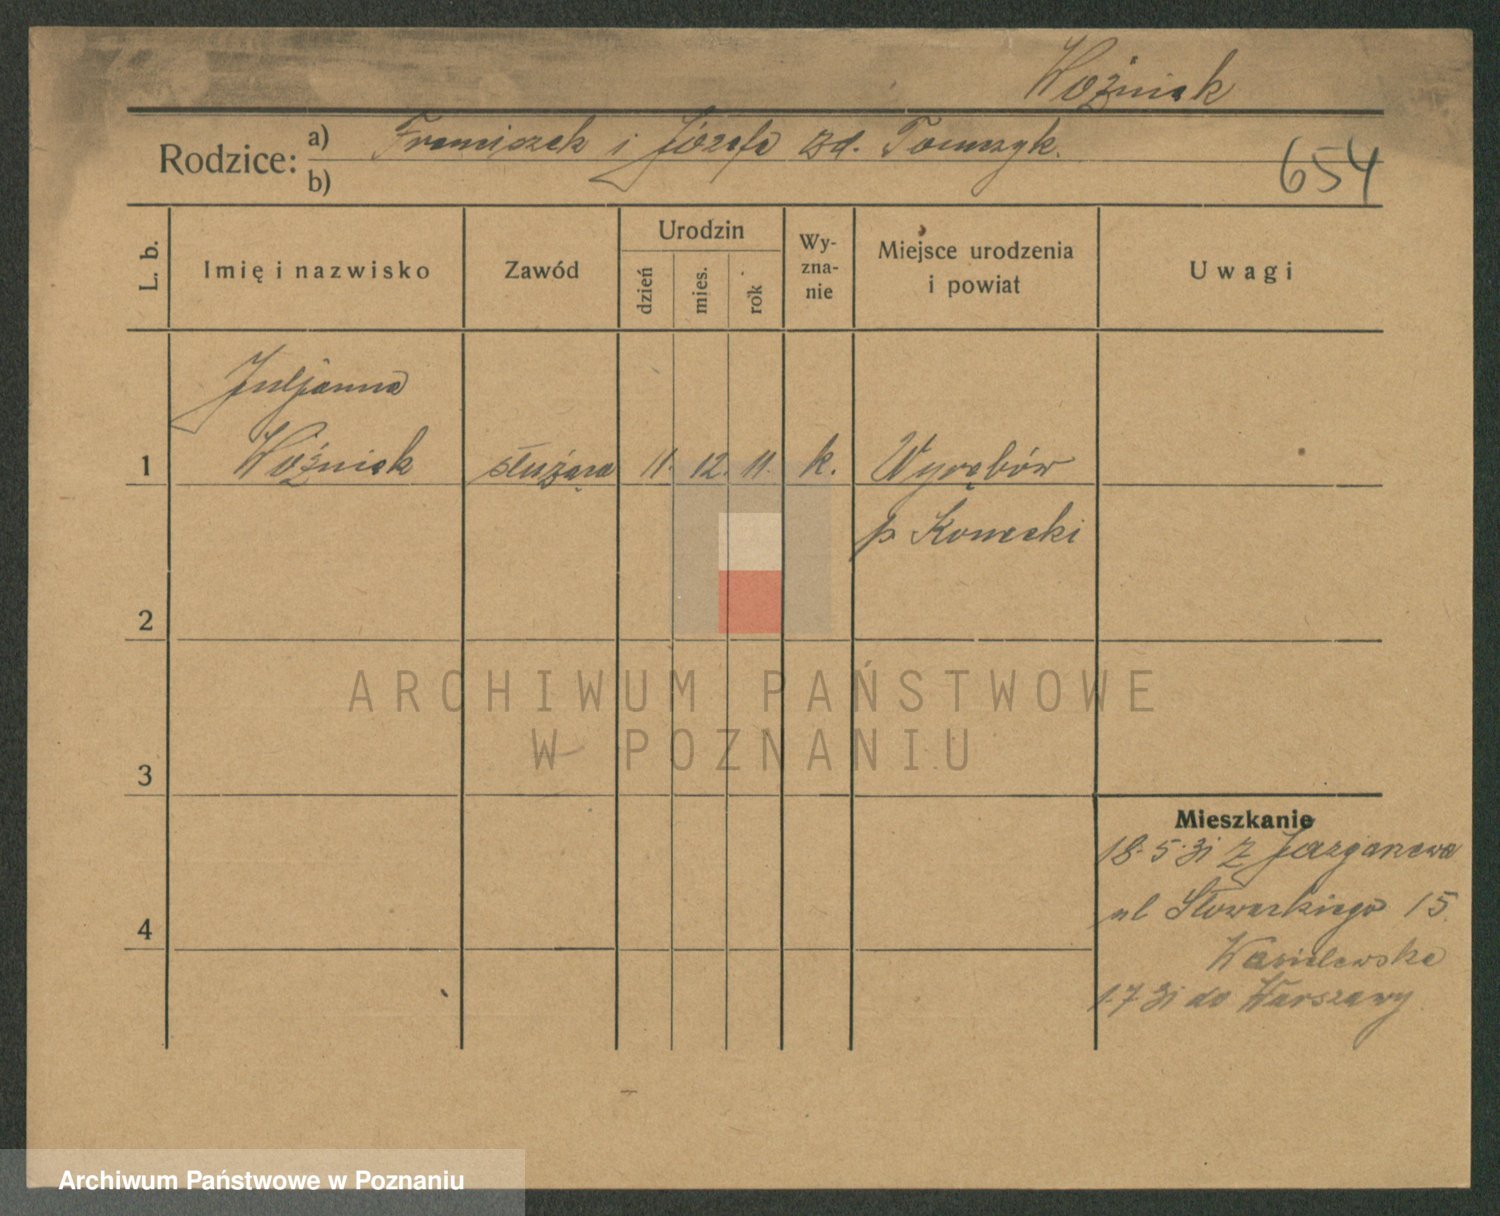 Woźniak
Rodzice: a) Franciszek i Józefa zd. Tomczyk.
b)
654
L. b.
Imię i nazwisko
Zawód
Urodzin
dzień
mies.
rok
Wy-
zna-
nie
Miejsce urodzenia
i powiat
Uwagi
Juljanna
1 Woźniak służąca 11. 12. 11. k. Wyrąbów
p. Konecki
2
ARCHIWUM PAŃSTWOWE
W POZNANIU
3
Mieszkanie
18.5.31 z
ul Słowackiego 15
Wasielewska
4
1.7 31 do Warszawy
Archiwum Państwowe w Poznaniu